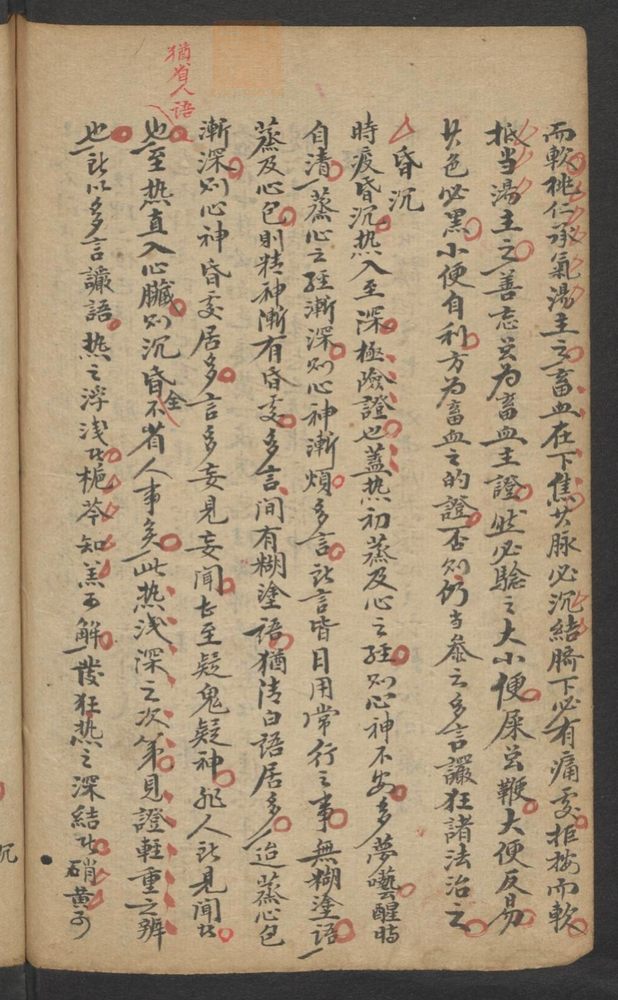 而軟桃仁承氣湯主之畜血在下焦其脉必沉結臍下必有痛處拒按而軟
抵当湯主之善忘亦为畜血主證然必驗之大小便屎雖鞕大便反易
其色必黑小便自利方为畜血之的證否则仍当叅之多言讝狂諸法治之
昏沉
時疫昏沉热入至深極險證也蓋热初蒸及心之經则心神不安多夢囈醒時
自清一蒸心之經漸深则心神漸煩多言所言皆日用常行之事無糊塗語一
蒸及心包則精神漸有昏處多言间有糊塗語猶清白語居多一迨蒸心包
漸深则心神昏處居多言多妄見妄聞甚至疑鬼疑神非人所見聞者
猶省人語
也至热直入心臟则沉昏全不省人事矣此热浅深之次第見證輕重之辨
也所以多言讝語热之浮浅者梔芩知羔可解發狂热之深結者硝黄可
沉